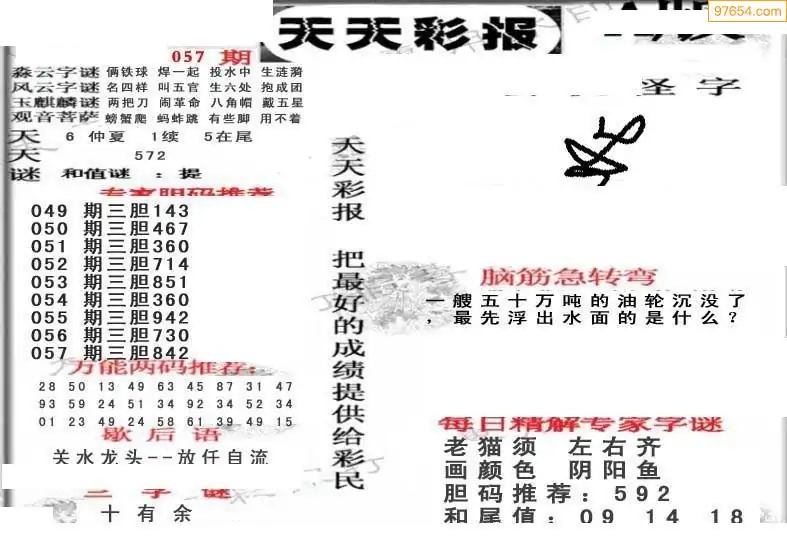 97654.com
天天彩报
057 期
圣字
森云字谜 俩铁球 焊一起 投水中 生涟漪
风云字谜 名四样 叫五官 生六处 抱成团
玉麒麟谜 两把刀 闹革命 八角帽 戴五星
观音菩萨 螃蟹爬 蚂蚱跳 有些脚 用不着
天 6 仲夏 1续 5在尾
天 572
谜 和值谜 : 提
专家胆码推荐
049 期三胆143
050 期三胆467
051 期三胆360
052 期三胆714
053 期三胆851
054 期三胆360
055 期三胆942
056 期三胆730
057 期三胆842
万能两码推荐:
28 50 13 49 63 45 87 31 47
93 59 24 51 34 92 34 52 34
01 23 49 24 58 61 39 49 15
歇后语
关水龙头--放任自流
三字谜
十有余
天天彩报 把最好的成绩提供给彩民
脑筋急转弯
一艘五十万吨的油轮沉没了
，最先浮出水面的是什么？
每日精解专家字谜
老猫须 左右齐
画颜色 阴阳鱼
胆码推荐: 592
和尾值: 09 14 18